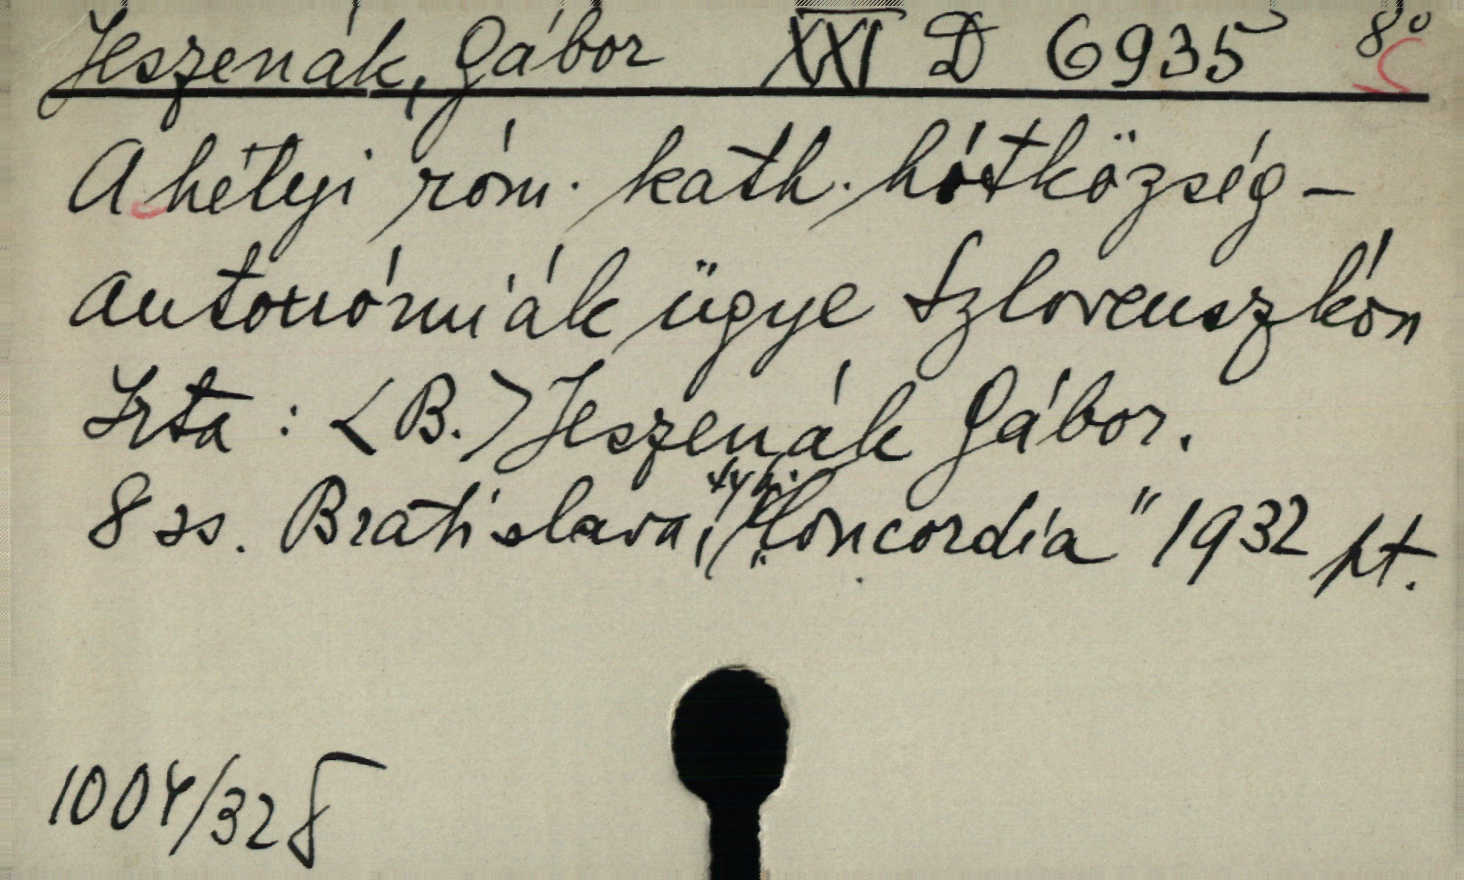 Jeszenák, Gábor XXI D 6935 8°
A helyi róm. kath. hitközség-
autonómiák ügye Szlovenszkón
Irta: <B.> Jeszenák Gábor.
8 ss. Bratislava, typ. „Concordia" 1932 pt.
1004/32